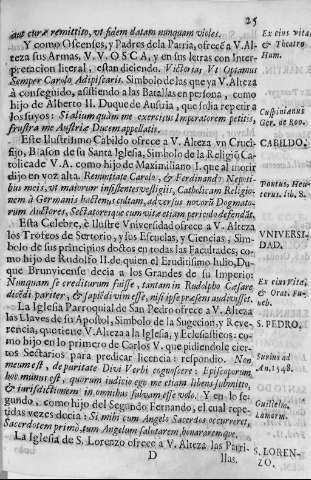 25
aut curæ remittito, ut fidem datam nunquam violes.
Y como Oscenses, y Padres de la Patria, ofrece à V. Alteza
sus Armas, V. V. O S C A, y en sus letras con Interpretacion
literal, estan diciendo. Victorias Vt Optamus
Semper Carolo Adipiscaris. Simbolo de las que ya V. Alteza
à conseguido, assistiendo a las Batallas en persona, como
hijo de Alberto II. Duque de Austria, que solia repetir a
los suyos: Si alium quàm me exercitus Imperatorem petitis,
frustra me Austriæ Ducem appellatis.
Este Ilustrissimo Cabildo ofrece a V. Alteza vn Crucifijo,
Blason de su Santa Iglesia, Simbolo de la Religiõ Catolica
de V. A. como hijo de Maximiliano I. que al morir
dijo en voz alta. Renuntiate Carolo, & Ferdinando Nepotibus
meis, ut maiorum insistentes vestigijs, Catholicam Religionem
à Germanis hactenus cultam, adversus novorū Dogmatorum
Auctores, Sectatoresque cum vitæ etiam periodo defendāt.
Esta Celebre, è Ilustre Vniversidad ofrece a V. Alteza
los Trofeos de Sertorio, y sus Escuelas, y Ciencias, Simbolo
de sus principios doctos en todas las Facultades, como
hijo de Rudolfo II. de quien el Eruditissimo Iulio, Duque
Brunvicense decia a los Grandes de su Imperio:
Nunquam se crediturum fuisse, tantam in Rudolpho Cæsare
dicēdi pariter, & sapiēdi vim esse, nisi ipse præsens audivisset.
La Iglesia Parroquial de San Pedro ofrece a V. Alteza
las Llaves de su Apostol, Simbolo de la Sugecion, y Reverencia,
que tiene V. Alteza a la Iglesia, y Eclesiasticos: como
hijo en lo primero de Carlos V. que pidiendole ciertos
Sectarios para predicar licencia: respondio. Non
meum est, de puritate Divi Verbi cognoscere: Episcoporum
hoc munus est, quorum iudicio ego me etiam libens submitto,
& iurisdictionem in omnibus salvam esse volo. Y en lo segundo,
como hijo del Segundo Fernando, el cual repetidas
vezes decia: Si mihi cum Angelo Sacerdos occurreret,
Sacerdotem primò, tum Angelum salutarem, honoraremque.
La Iglesia de S. Lorenzo ofrece a V. Alteza las Parri-
D
llas.
Ex eius vita,
& Theatro
Hum.
Cuspinianus
Ger. de Reo.
CABILDO.
Pontus, Heuterus
lib. 8.
VNIVERSIDAD.
Ex eius Vita,
& Orat. Funeb.
S. PEDRO.
Surius ad
An. 1548.
Guilielm.
Lamorm.
S. LORENZO.